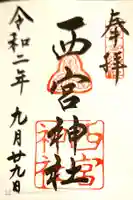 奉拝
西宮神社
令和二年
九月廿九日
西宮
神社